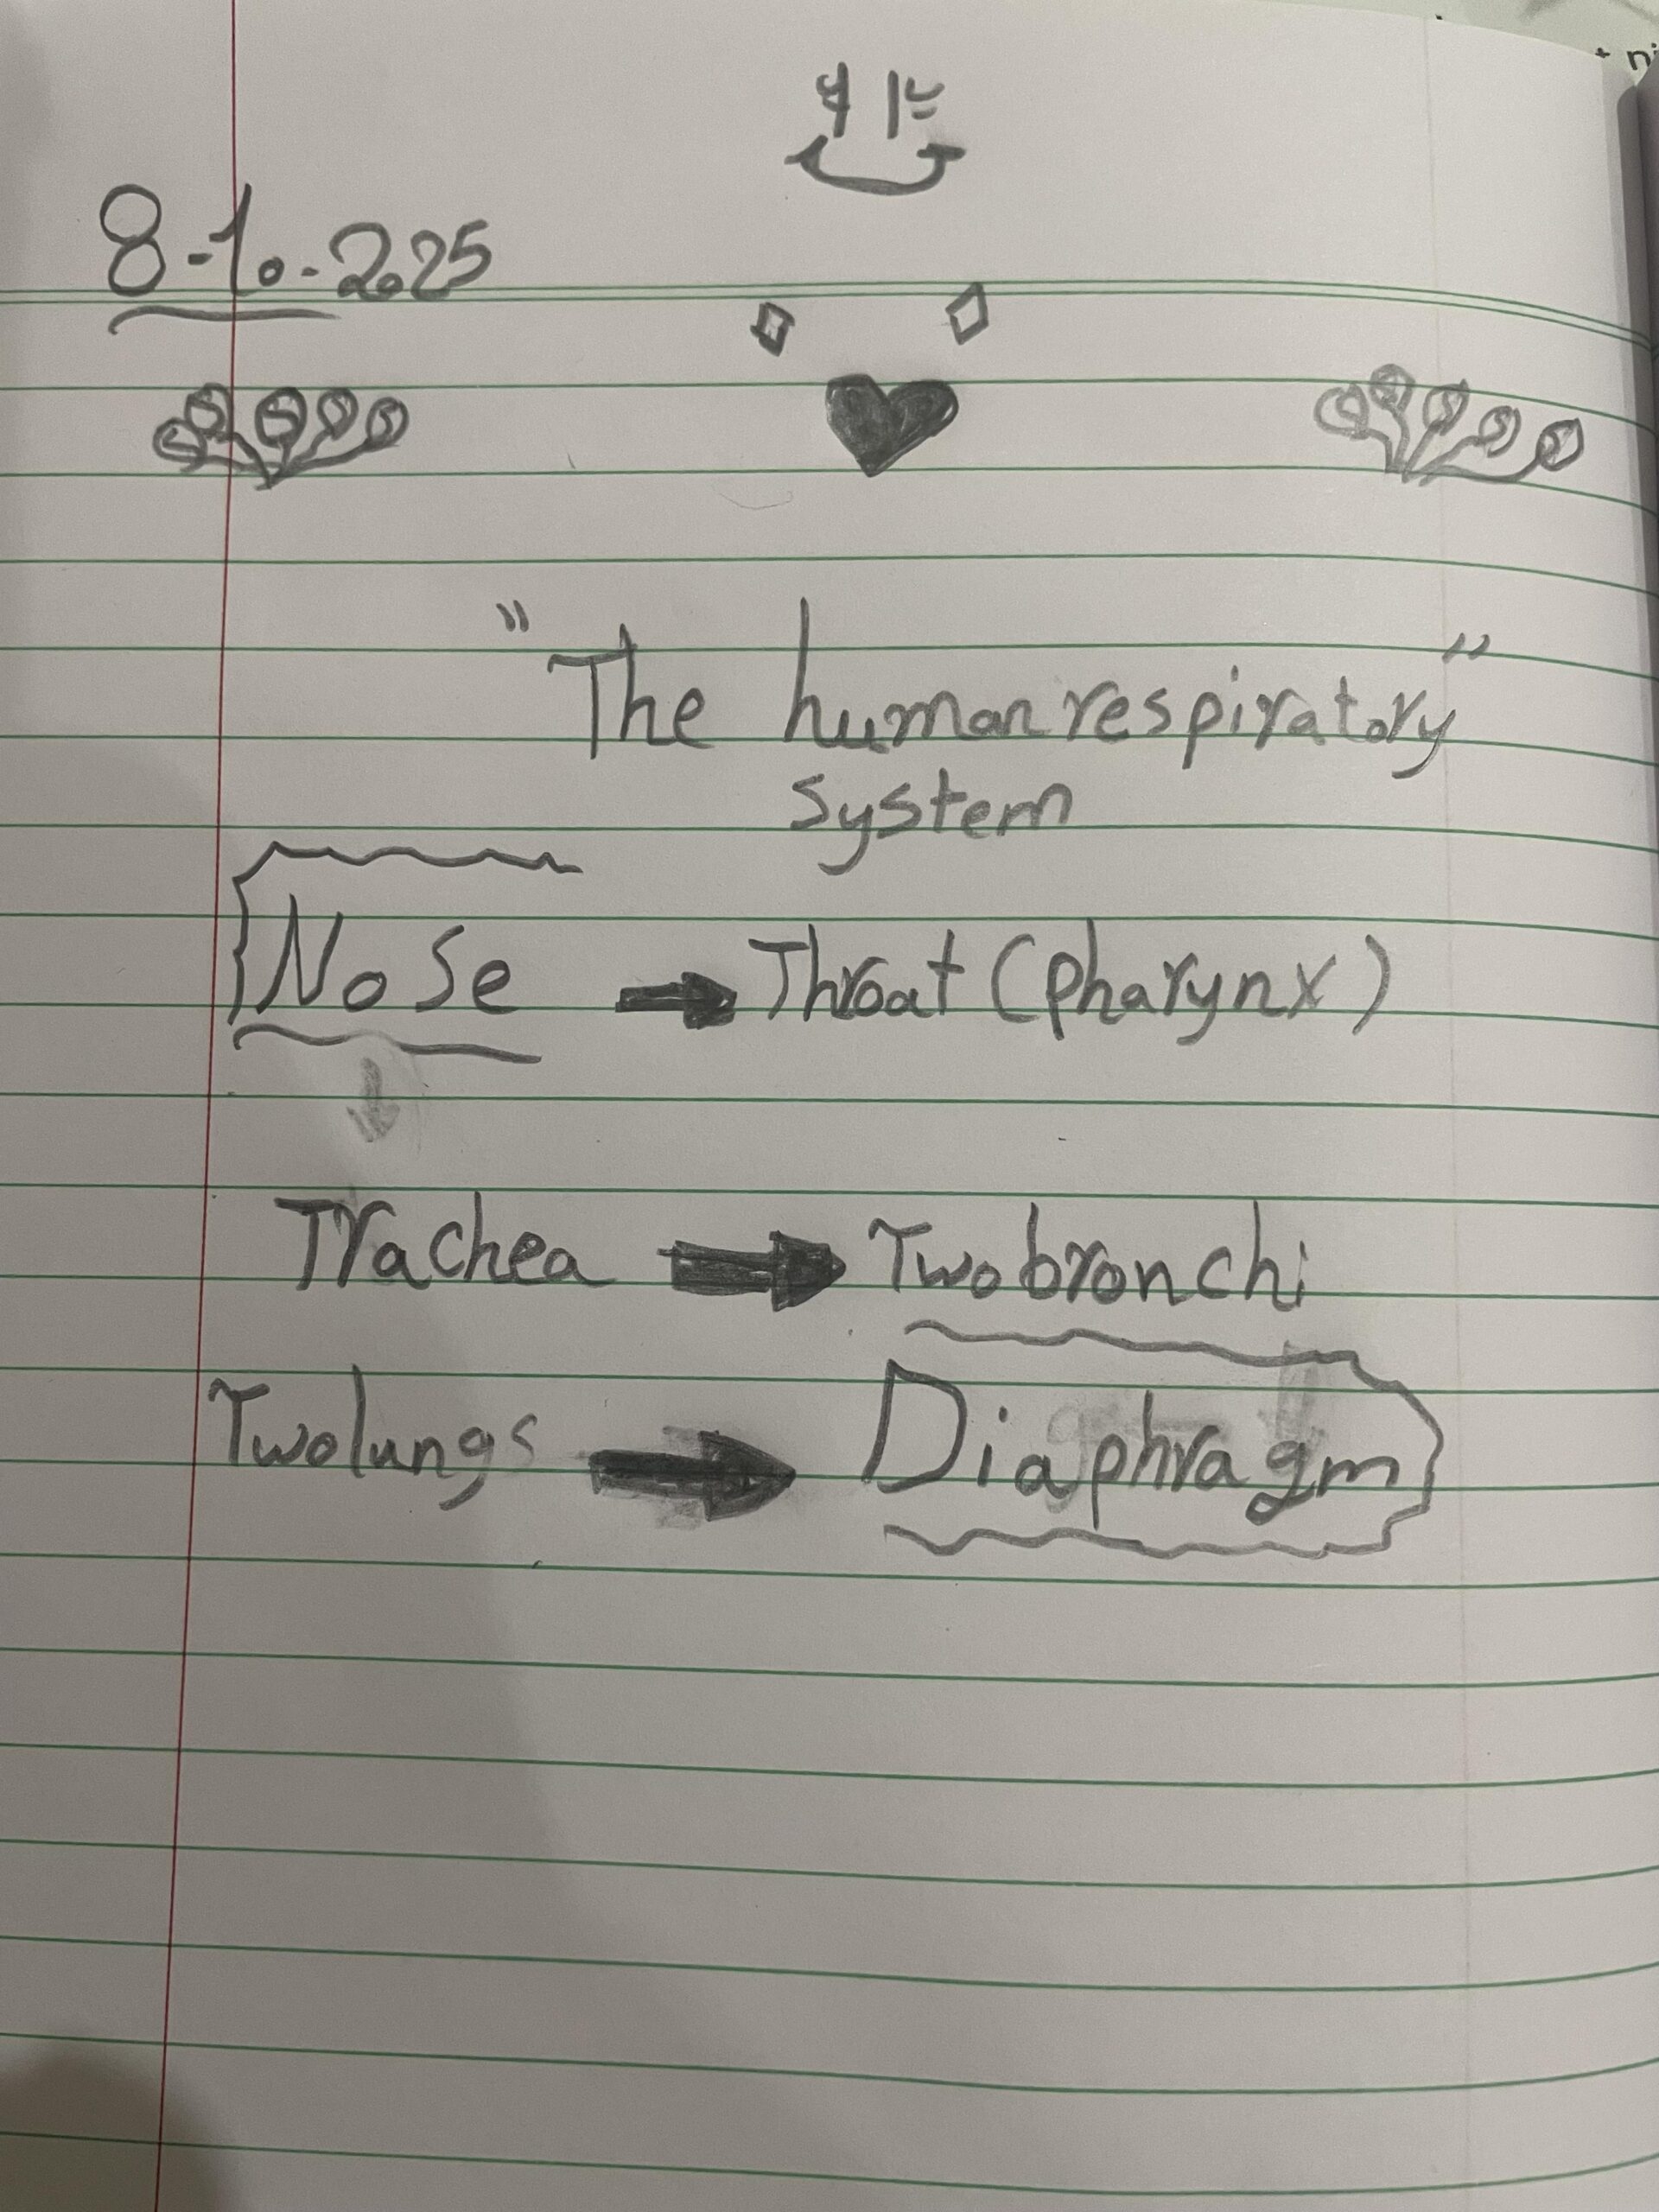 8-10-2025
"The human respiratory"
system
Nose → Throat (pharynx)
Trachea → Two bronchi
Two lungs → Diaphragm